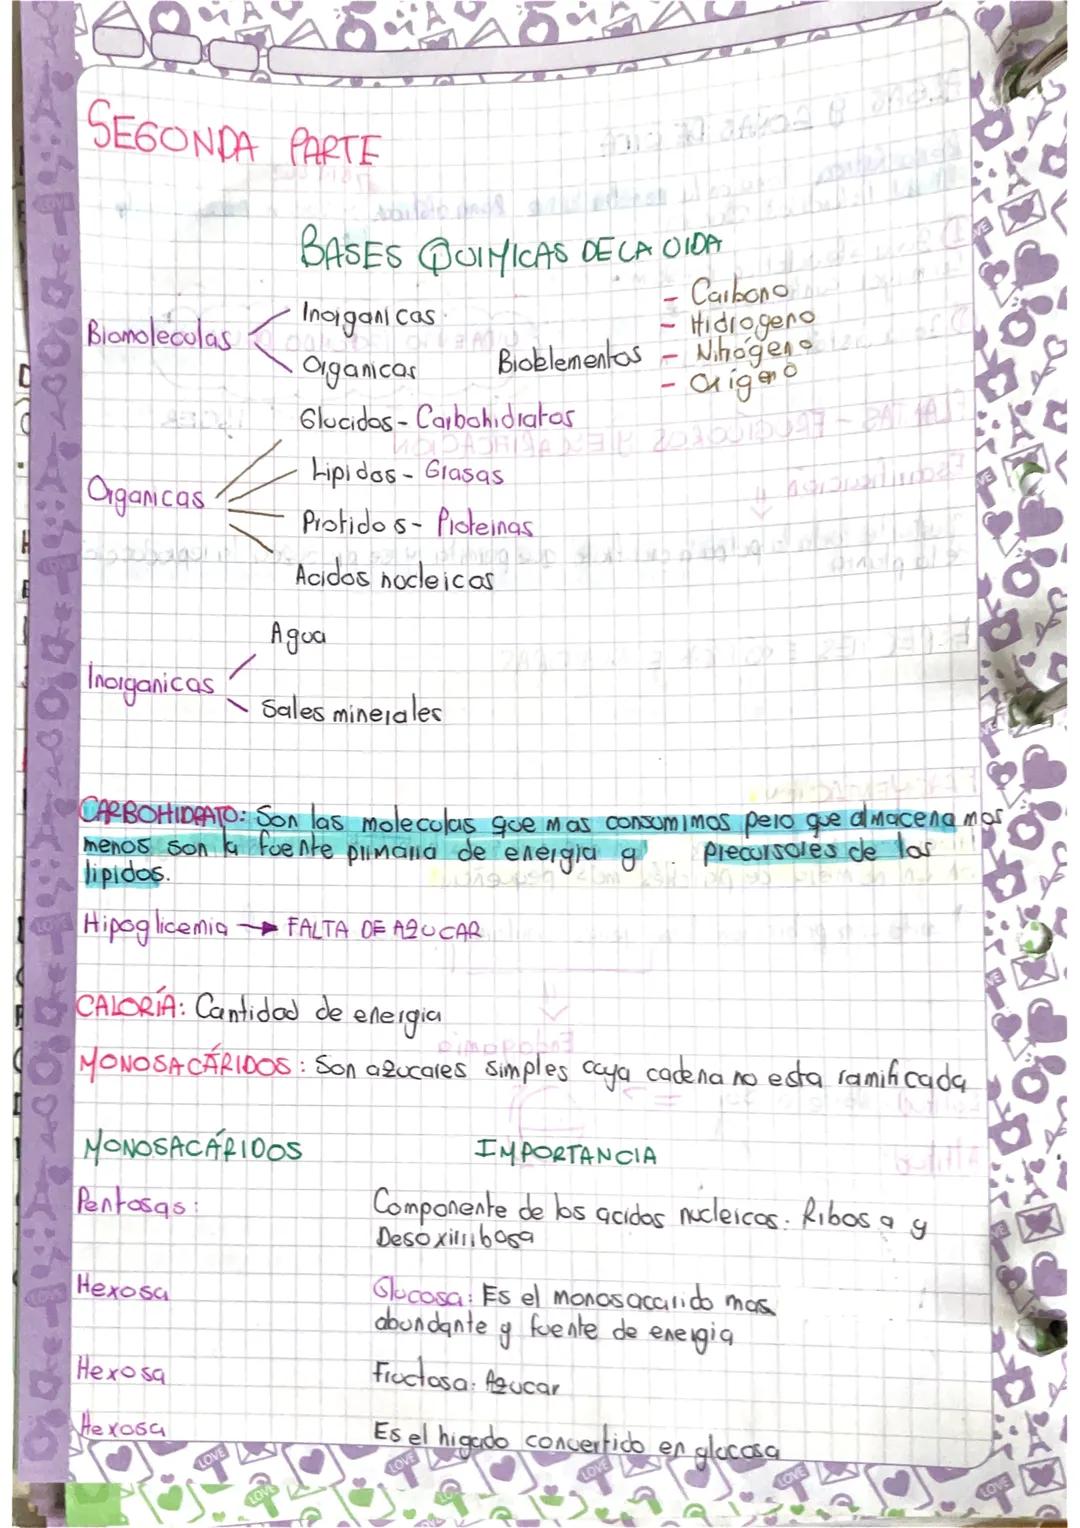 SEGONDA PARTE
BASES QUIMICAS DE LA VIDA
Biomoleculas
Inorganicas
Organicas
Bioelementos
- Carbono
- Hidrogeno
- Nitrógeno
- Oxigeno
Organicas
Glucidos - Carbohidratos
Lipidos - Grasas
Protidos - Proteinas
Acidos nucleicos
Inorganicas
Agua
Sales minerales
CARBOHIDRATO: Son las moleculas que mas consumimos pero que almacena mas
menos son la fuente primaria de energia y precursores de los
lipidos.
Hipoglicemia → FALTA DE AZUCAR
CALORÍA: Cantidad de energia
MONOSACÁRIDOS: Son azucares simples cuya cadena no esta ramificada
MONOSACÁRIDOS IMPORTANCIA
Pentosas: Componente de los acidos nucleicos. Ribosa y
Desoxirribosa
Hexosa Glucosa: Es el monosacarido mas
abundante y fuente de energia
Hexosa Fructosa: Azucar
Hexosa Es el higado convertido en glucosa
LOVE
LOVE
LOVE
LOVE
LOVE
LOVE